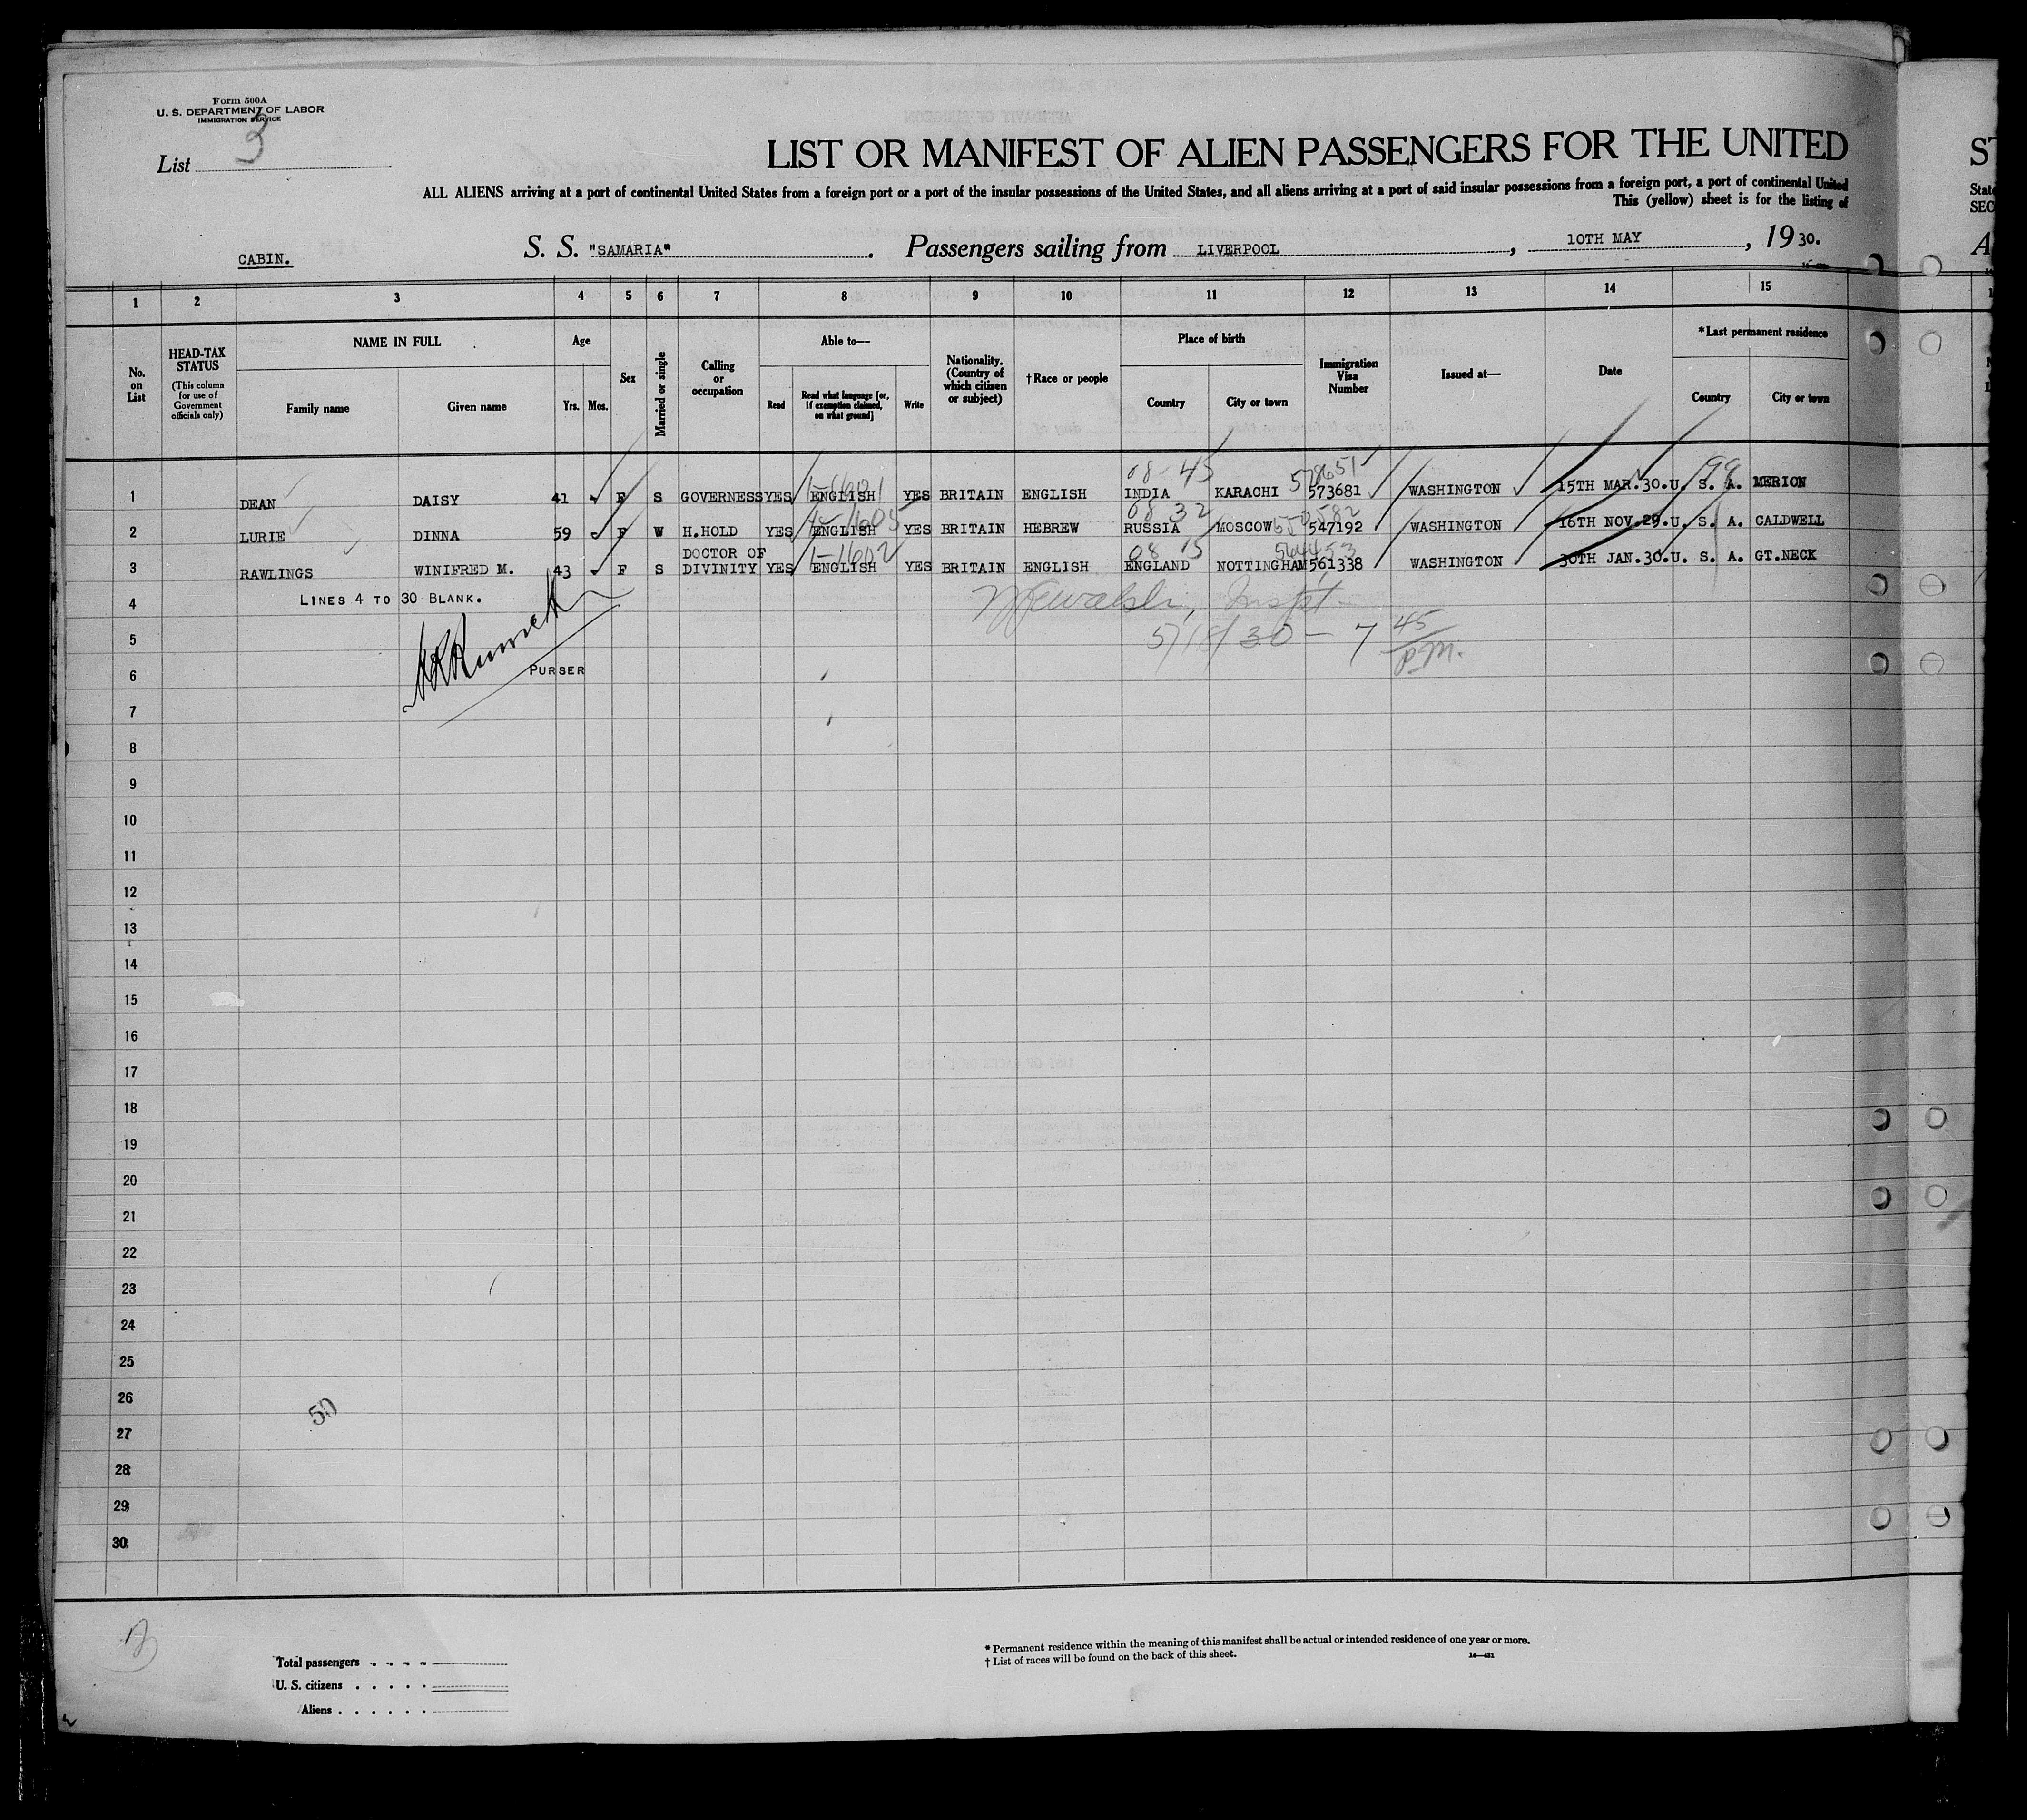 Form 500A
U. S. DEPARTMENT OF LABOR
IMMIGRATION SERVICE
List 3
LIST OR MANIFEST OF ALIEN PASSENGERS FOR THE UNITED
ST
ALL ALIENS arriving at a port of continental United States from a foreign port or a port of the insular possessions of the United States, and all aliens arriving at a port of said insular possessions from a foreign port, a port of continental United
This (yellow) sheet is for the listing of
State
SEC
CABIN. S. S. "SAMARIA" . Passengers sailing from LIVERPOOL , 10TH MAY , 19 30.
A
1 2 3 4 5 6 7 8 9 10 11 12 13 14 15
No. on List
HEAD-TAX STATUS
(This column for use of Government officials only)
NAME IN FULL
Family name Given name
Age
Yrs. Mos.
Sex
Married or single
Calling or occupation
Able to—
Read Read what language [or, if exemption claimed, on what ground] Write
Nationality. (Country of which citizen or subject)
†Race or people
Place of birth
Country City or town
Immigration Visa Number
Issued at—
Date
*Last permanent residence
Country City or town
08 - 45 99
1 DEAN DAISY 41 F S GOVERNESS YES ENGLISH YES BRITAIN ENGLISH INDIA KARACHI 573681 WASHINGTON 15TH MAR.30. U. S. A. MERION
08 32
2 LURIE DINNA 59 F W H.HOLD YES ENGLISH YES BRITAIN HEBREW RUSSIA MOSCOW 547192 WASHINGTON 16TH NOV.29. U. S. A. CALDWELL
1-1602 08 15 564453
3 RAWLINGS WINIFRED M. 43 F S DOCTOR OF DIVINITY YES ENGLISH YES BRITAIN ENGLISH ENGLAND NOTTINGHAM 561338 WASHINGTON 30TH JAN.30. U. S. A. GT.NECK
4 LINES 4 TO 30 BLANK.
Inspt.
5 5/18/30 - 7 45 p.m.
6 PURSER
7
8
9
10
11
12
13
14
15
16
17
18
19
20
21
22
23
24
25
26
50
27
28
29
30
* Permanent residence within the meaning of this manifest shall be actual or intended residence of one year or more.
† List of races will be found on the back of this sheet.
14—421
Total passengers
U. S. citizens
Aliens